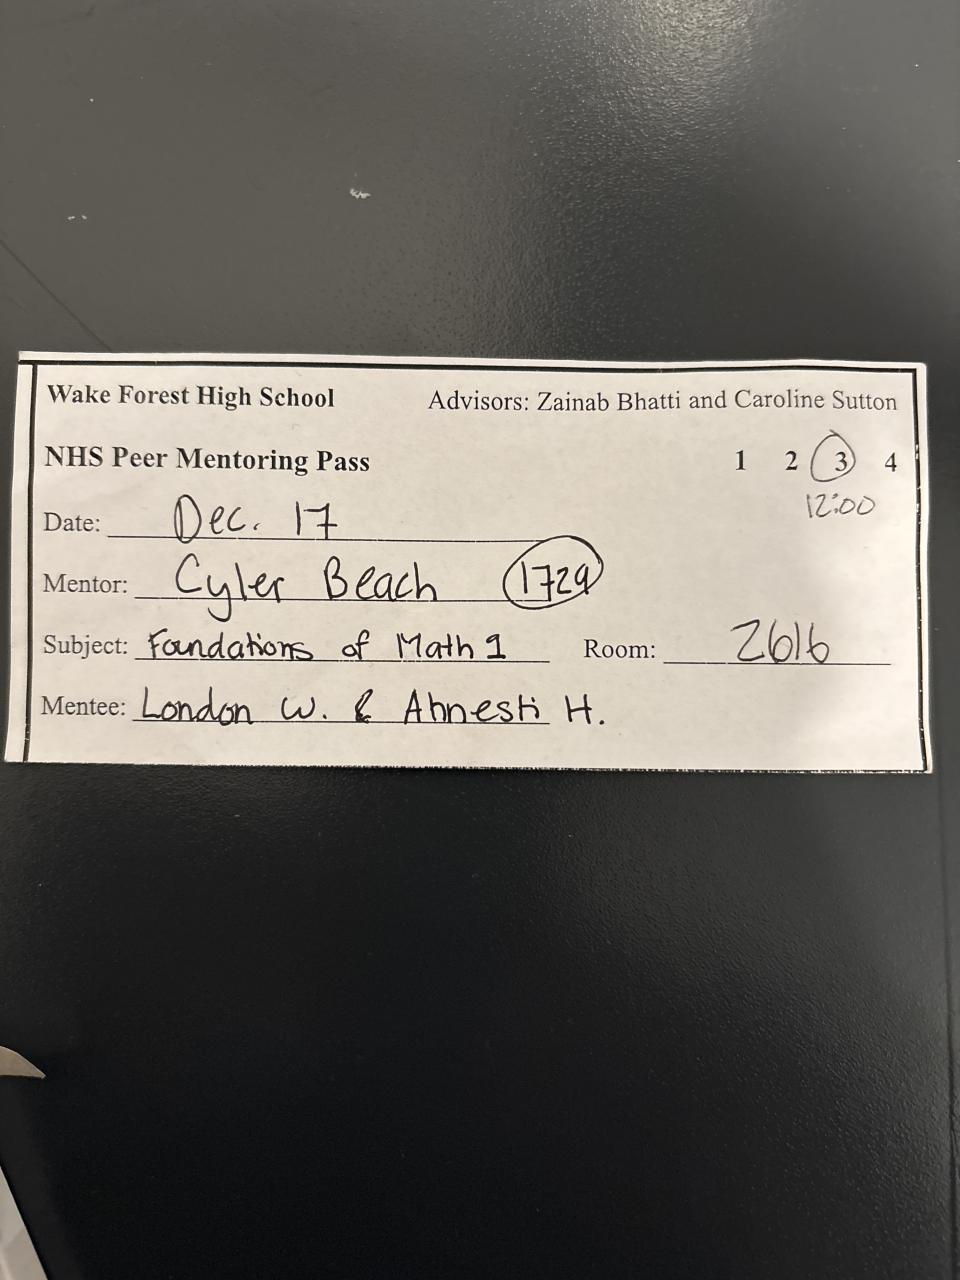 Wake Forest High School Advisors: Zainab Bhatti and Caroline Sutton
NHS Peer Mentoring Pass 1 2 3 4
12:00
Date: Dec. 17
Mentor: Cyler Beach 1729
Subject: Foundations of Math 1 Room: 2616
Mentee: London W. & Ahnesti H.